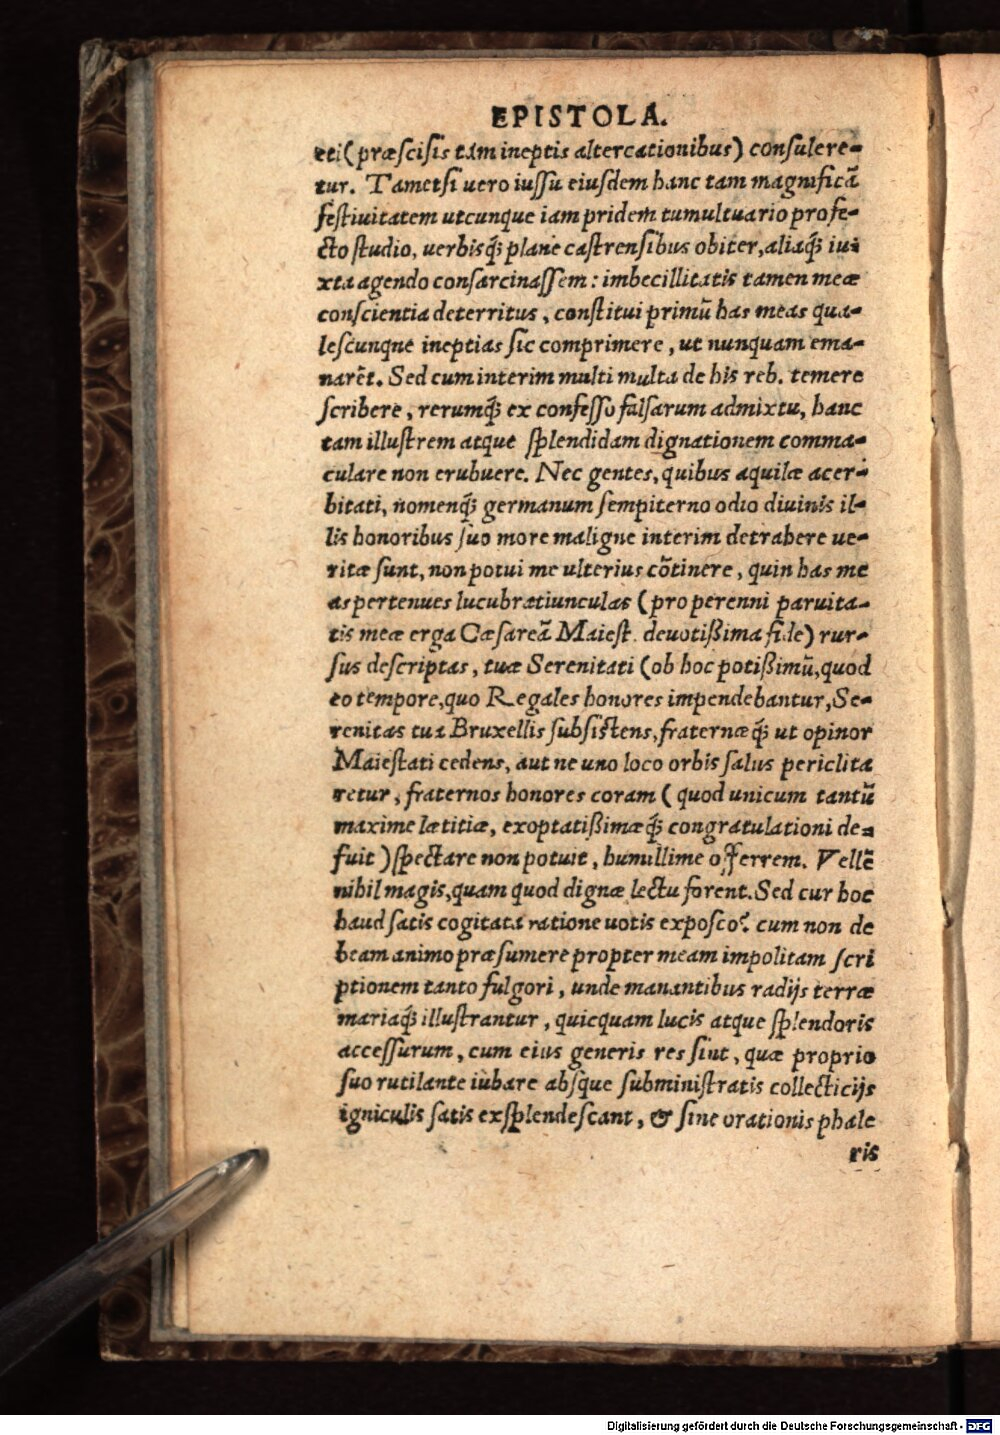 EPISTOLA.
eti (præscisis tàm ineptis altercationibus) consulere-
tur. Tametsi uero iussu eiusdem hanc tam magnificã
festiuitatem utcunque iam pridem tumultuario profe-
cto studio, uerbisq́; plane castrensibus obiter, aliaq́; iu-
xta agendo consarcinassem: imbecillitatis tamen meæ
conscientia deterritus, constitui primũ has meas qua-
lescunque ineptias sic comprimere, ut nunquam ema-
narẽt. Sed cum interim multi multa de his reb. temere
scribere, rerumq́; ex confesso falsarum admixtu, hanc
tam illustrem atque splendidam dignationem comma-
culare non erubuere. Nec gentes, quibus aquilæ acer-
bitati, nomenq́; germanum sempiterno odio diuinis il-
lis honoribus suo more maligne interim detrahere ue-
ritæ sunt, non potui me ulterius cõtinere, quin has me
as pertenues lucubratiunculas (pro perenni paruita-
tis meæ erga Cæsareã Maiest. deuotißima fide) rur-
sus descriptas, tuæ Serenitati (ob hoc potißimũ, quod
eo tempore, quo Regales honores impendebantur, Se-
renitas tua Bruxellis subsistens, fraternæq́; ut opinor
Maiestati cedens, aut ne uno loco orbis salus periclita
retur, fraternos honores coram (quod unicum tantũ
maxime lætitiæ, exoptatißimæq́; congratulationi de-
fuit) spectare non potuit, humillime offerrem. Vellẽ
nihil magis, quam quod dignæ lectu forent. Sed cur hoc
haud satis cogitata ratione uotis exposco? cum non de
beam animo præsumere propter meam impolitam scri
ptionem tanto fulgori, unde manantibus radijs terræ
mariaq́; illustrantur, quicquam lucis atque splendoris
accessurum, cum eius generis res sint, quæ proprio
suo rutilante iubare absque subministratis collecticijs
igniculis satis exsplendescant, & sine orationis phale
ris
Digitalisierung gefördert durch die Deutsche Forschungsgemeinschaft - DFG